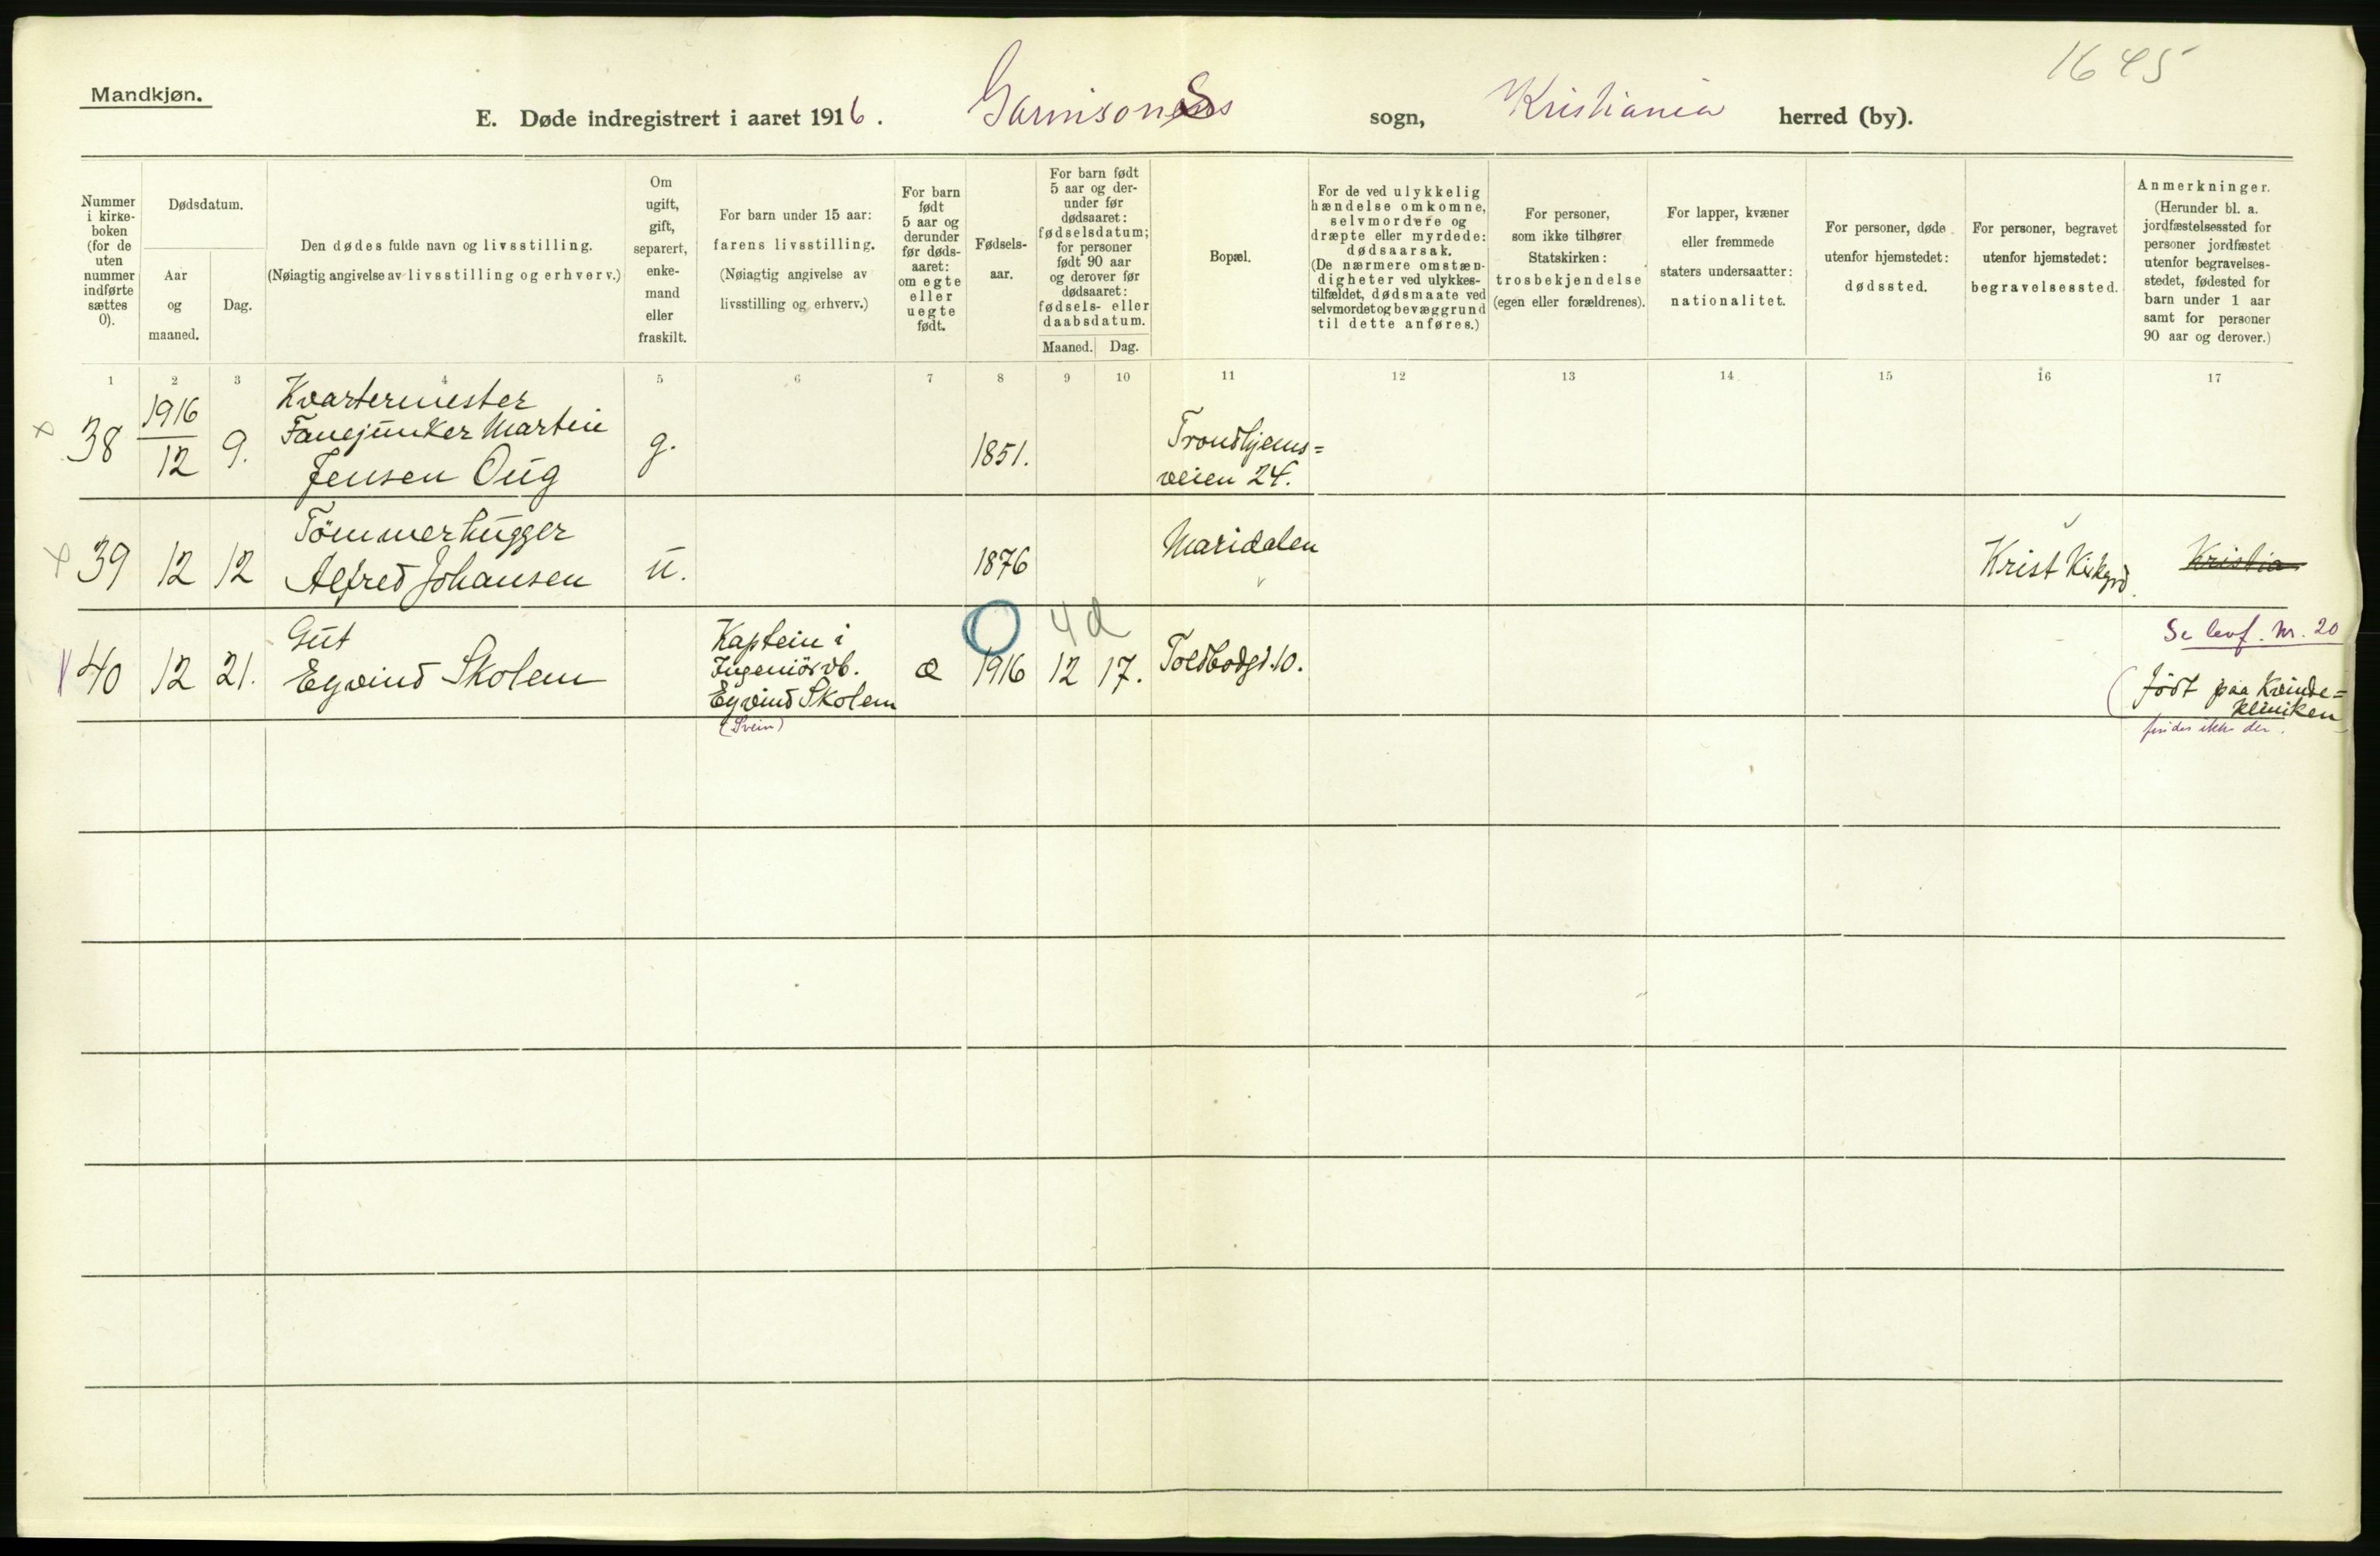 1645
Mandkjøn.
E. Døde indregistrert i aaret 1916. Garnisons sogn, Kristiania herred (by).
Nummer
i kirke-
boken
(for de
uten
nummer
indførte
sættes
0).
Dødsdatum.
Aar
og
maaned.
Dag.
Den dødes fulde navn og livsstilling.
(Nøiagtig angivelse av livsstilling og erhverv.)
Om
ugift,
gift,
separert,
enke-
mand
eller
fraskilt.
For barn under 15 aar:
farens livsstilling.
(Nøiagtig angivelse av
livsstilling og erhverv.)
For barn
født
5 aar og
derunder
før døds-
aaret:
om egte
eller
uegte
født.
Fødsels-
aar.
For barn født
5 aar og der-
under før
dødsaaret:
fødselsdatum;
for personer
født 90 aar
og derover før
dødsaaret:
fødsels- eller
daabsdatum.
Maaned. Dag.
Bopæl.
For de ved ulykkelig
hændelse omkomne,
selvmordere og
dræpte eller myrdede:
dødsaarsak.
(De nærmere omstæn-
digheter ved ulykkes-
tilfældet, dødsmaate ved
selvmordet og bevæggrund
til dette anføres.)
For personer,
som ikke tilhører
Statskirken:
trosbekjendelse
(egen eller forældrenes).
For lapper, kvæner
eller fremmede
staters undersaatter:
nationalitet.
For personer, døde
utenfor hjemstedet:
dødssted.
For personer, begravet
utenfor hjemstedet:
begravelsessted.
Anmerkninger.
(Herunder bl. a.
jordfæstelsessted for
personer jordfæstet
utenfor begravelses-
stedet, fødested for
barn under 1 aar
samt for personer
90 aar og derover.)
1 2 3 4 5 6 7 8 9 10 11 12 13 14 15 16 17
x 38
1916
12
9.
Kvartermester
Fanejunker Martin
Jensen Oug
g.
1851.
Trondhjems=
veien 24.
x 39 12 12
Tömmerhugger
Alfred Johansen
u.
1876
Maridalen
Krist Kirkgrd.
Kristia
40 12 21.
Gut
Eyvind Skolem
Kaptein i
Ingeniörvb.
Eyvind Skolem
(Svein)
1916 12 17.
4d
Toldbodgt 10.
Se levf. Nr. 20
(födt paa Kvinde=
kliniken
findes ikke der.